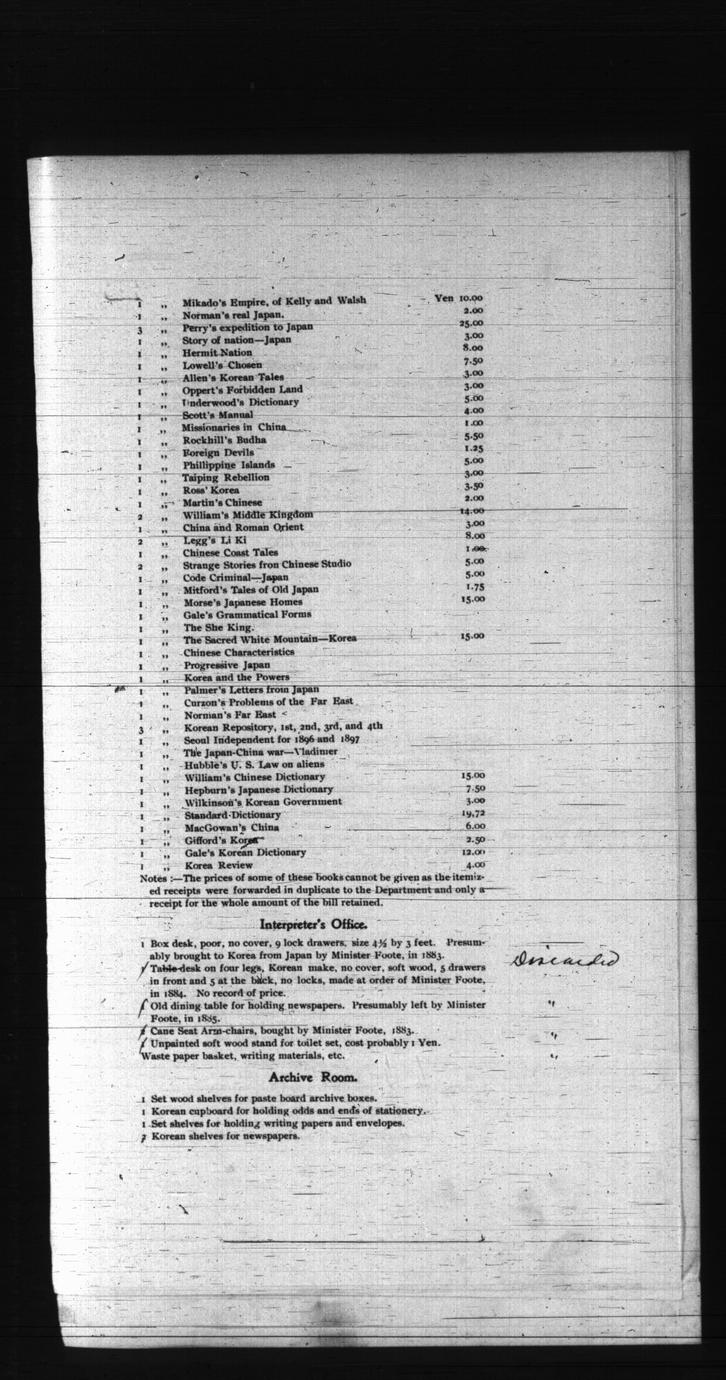 1 „ Mikado's Empire, of Kelly and Walsh Yen 10.00
1 „ Norman's real Japan. 2.00
3 „ Perry's expedition to Japan 25.00
1 „ Story of nation—Japan 3.00
1 „ Hermit Nation 8.00
1 „ Lowell's Chosen 7.50
1 „ Allen's Korean Tales 3.00
1 „ Oppert's Forbidden Land 3.00
1 „ Underwood's Dictionary 5.00
1 „ Scott's Manual 4.00
1 „ Missionaries in China 1.00
1 „ Rockhill's Budha 5.50
1 „ Foreign Devils 1.25
1 „ Phillippine Islands 5.00
1 „ Taiping Rebellion 3.00
1 „ Ross' Korea 3.50
1 „ Martin's Chinese 2.00
2 „ William's Middle Kingdom 14.00
1 „ China and Roman Orient 3.00
2 „ Legg's Li Ki 8.00
1 „ Chinese Coast Tales 1.00
2 „ Strange Stories fron Chinese Studio 5.00
1 „ Code Criminal—Japan 5.00
1 „ Mitford's Tales of Old Japan 1.75
1 „ Morse's Japanese Homes 15.00
1 „ Gale's Grammatical Forms
1 „ The She King.
1 „ The Sacred White Mountain—Korea 15.00
1 „ Chinese Characteristics
1 „ Progressive Japan
1 „ Korea and the Powers
1 „ Palmer's Letters from Japan
1 „ Curzon's Problems of the Far East
1 „ Norman's Far East
3 „ Korean Repository, 1st, 2nd, 3rd, and 4th
1 „ Seoul Independent for 1896 and 1897
1 „ The Japan-China war—Vladimer
1 „ Hubble's U. S. Law on aliens
1 „ William's Chinese Dictionary 15.00
1 „ Hepburn's Japanese Dictionary 7.50
1 „ Wilkinson's Korean Government 3.00
1 „ Standard Dictionary 19.72
1 „ MacGowan's China 6.00
1 „ Gifford's Korea 2.50
1 „ Gale's Korean Dictionary 12.00
1 „ Korea Review 4.00
Notes :—The prices of some of these books cannot be given as the itemiz-
ed receipts were forwarded in duplicate to the Department and only a
receipt for the whole amount of the bill retained.
Interpreter's Office.
1 Box desk, poor, no cover, 9 lock drawers, size 4½ by 3 feet. Presum-
ably brought to Korea from Japan by Minister Foote, in 1883. Discarded
1 Table desk on four legs, Korean make, no cover, soft wood, 5 drawers
in front and 5 at the back, no locks, made at order of Minister Foote,
in 1884. No record of price.
1 Old dining table for holding newspapers. Presumably left by Minister "
Foote, in 1885.
Cane Seat Arm-chairs, bought by Minister Foote, 1883. "
1 Unpainted soft wood stand for toilet set, cost probably 1 Yen.
Waste paper basket, writing materials, etc. "
Archive Room.
1 Set wood shelves for paste board archive boxes.
1 Korean cupboard for holding odds and ends of stationery.
1 Set shelves for holding writing papers and envelopes.
Korean shelves for newspapers.